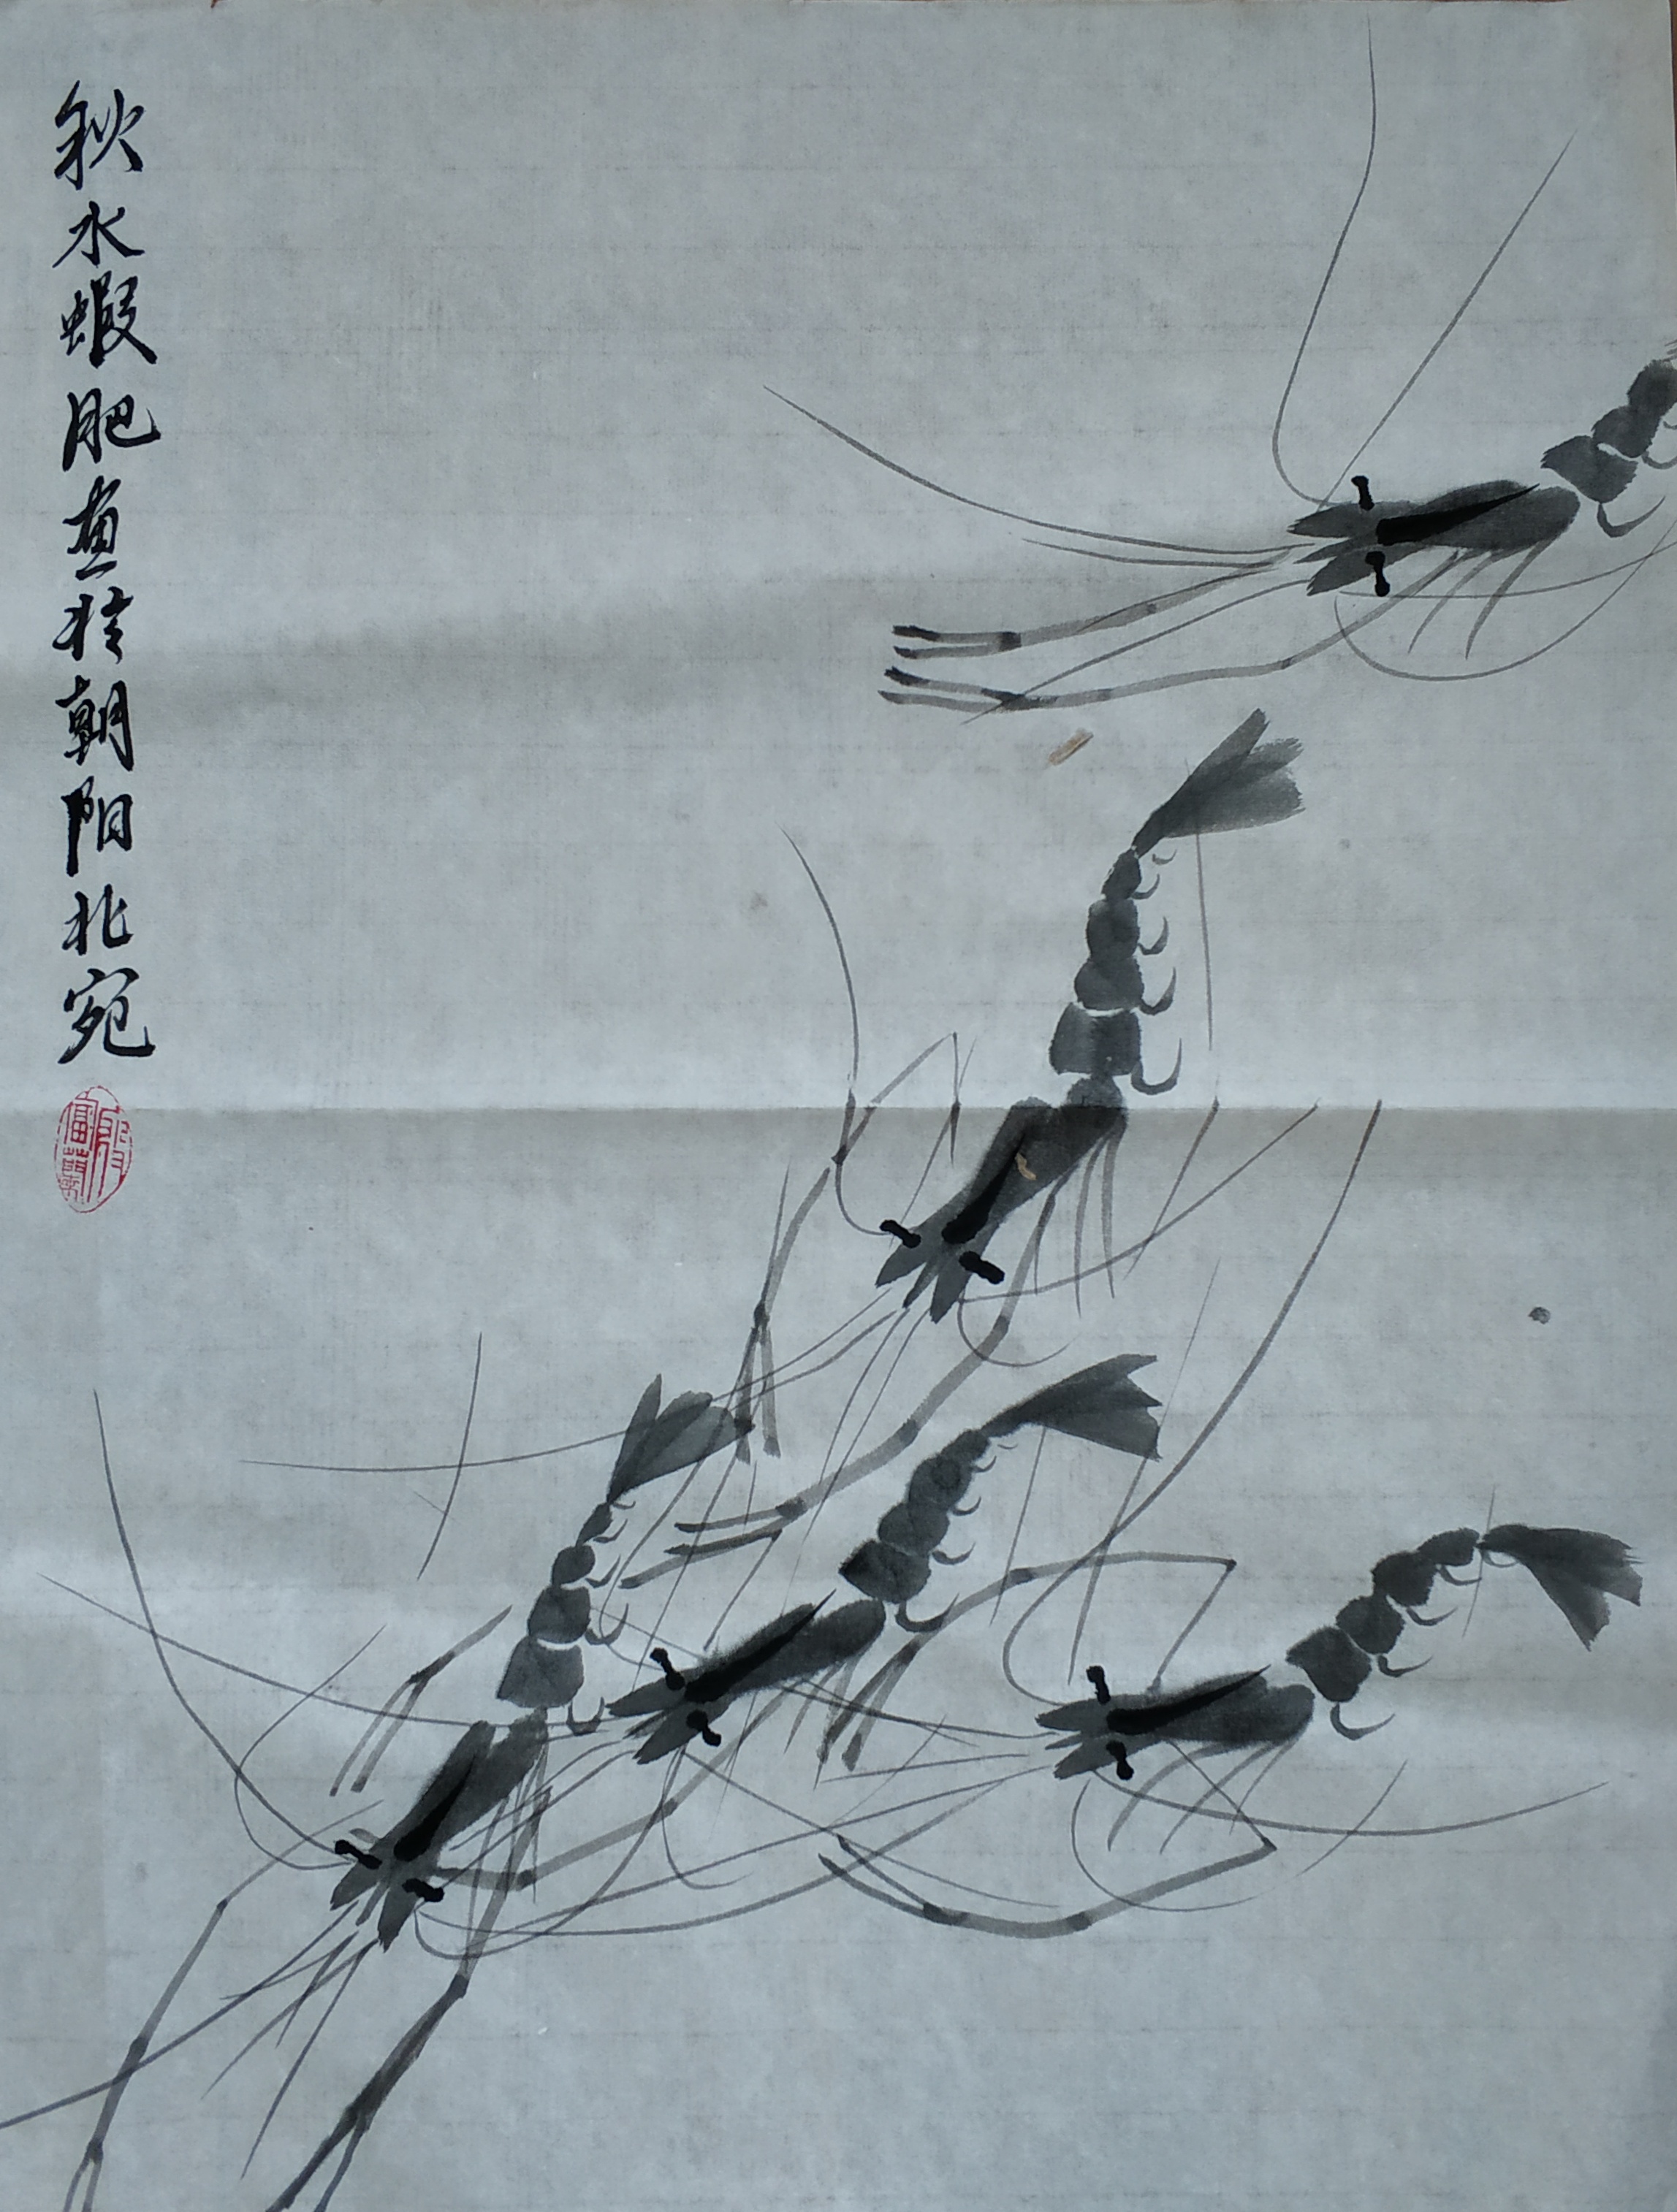 秋水蝦肥畫於朝阳北宛